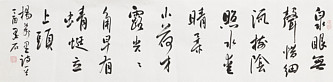 泉眼無
聲惜細
流樹陰
照水愛
晴柔
小荷才
露尖尖
角早有
蜻蜓立
上頭
楊萬里詩